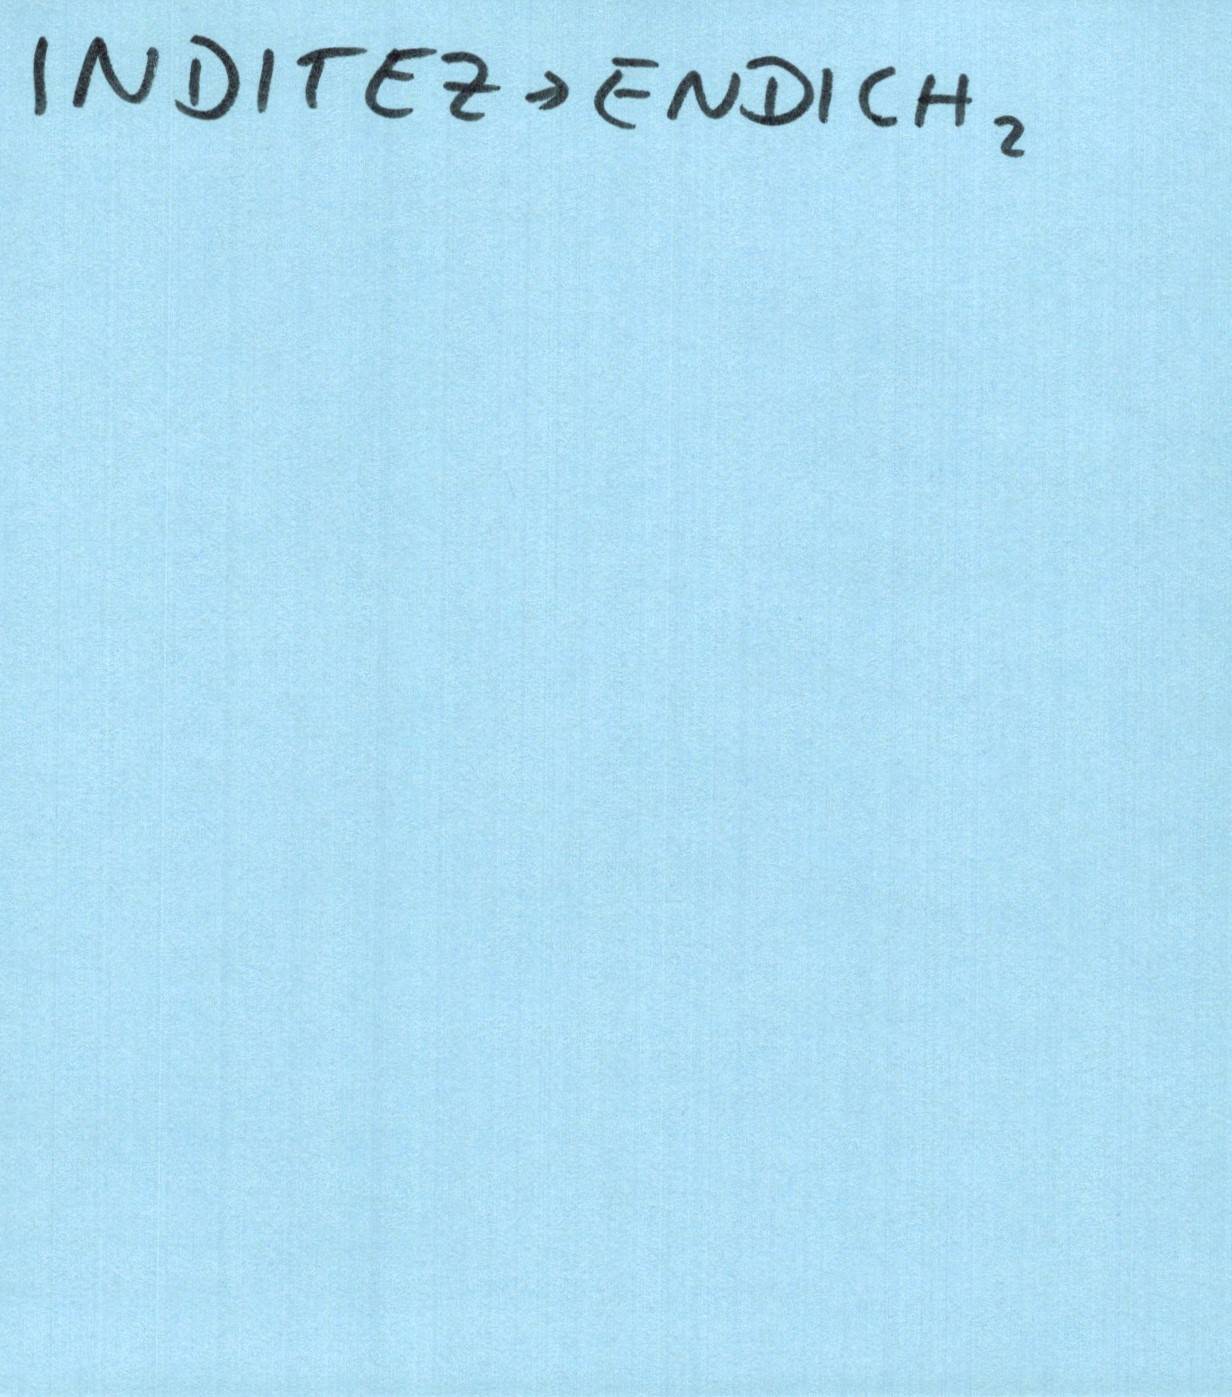 INDITEZ → ENDICH₂